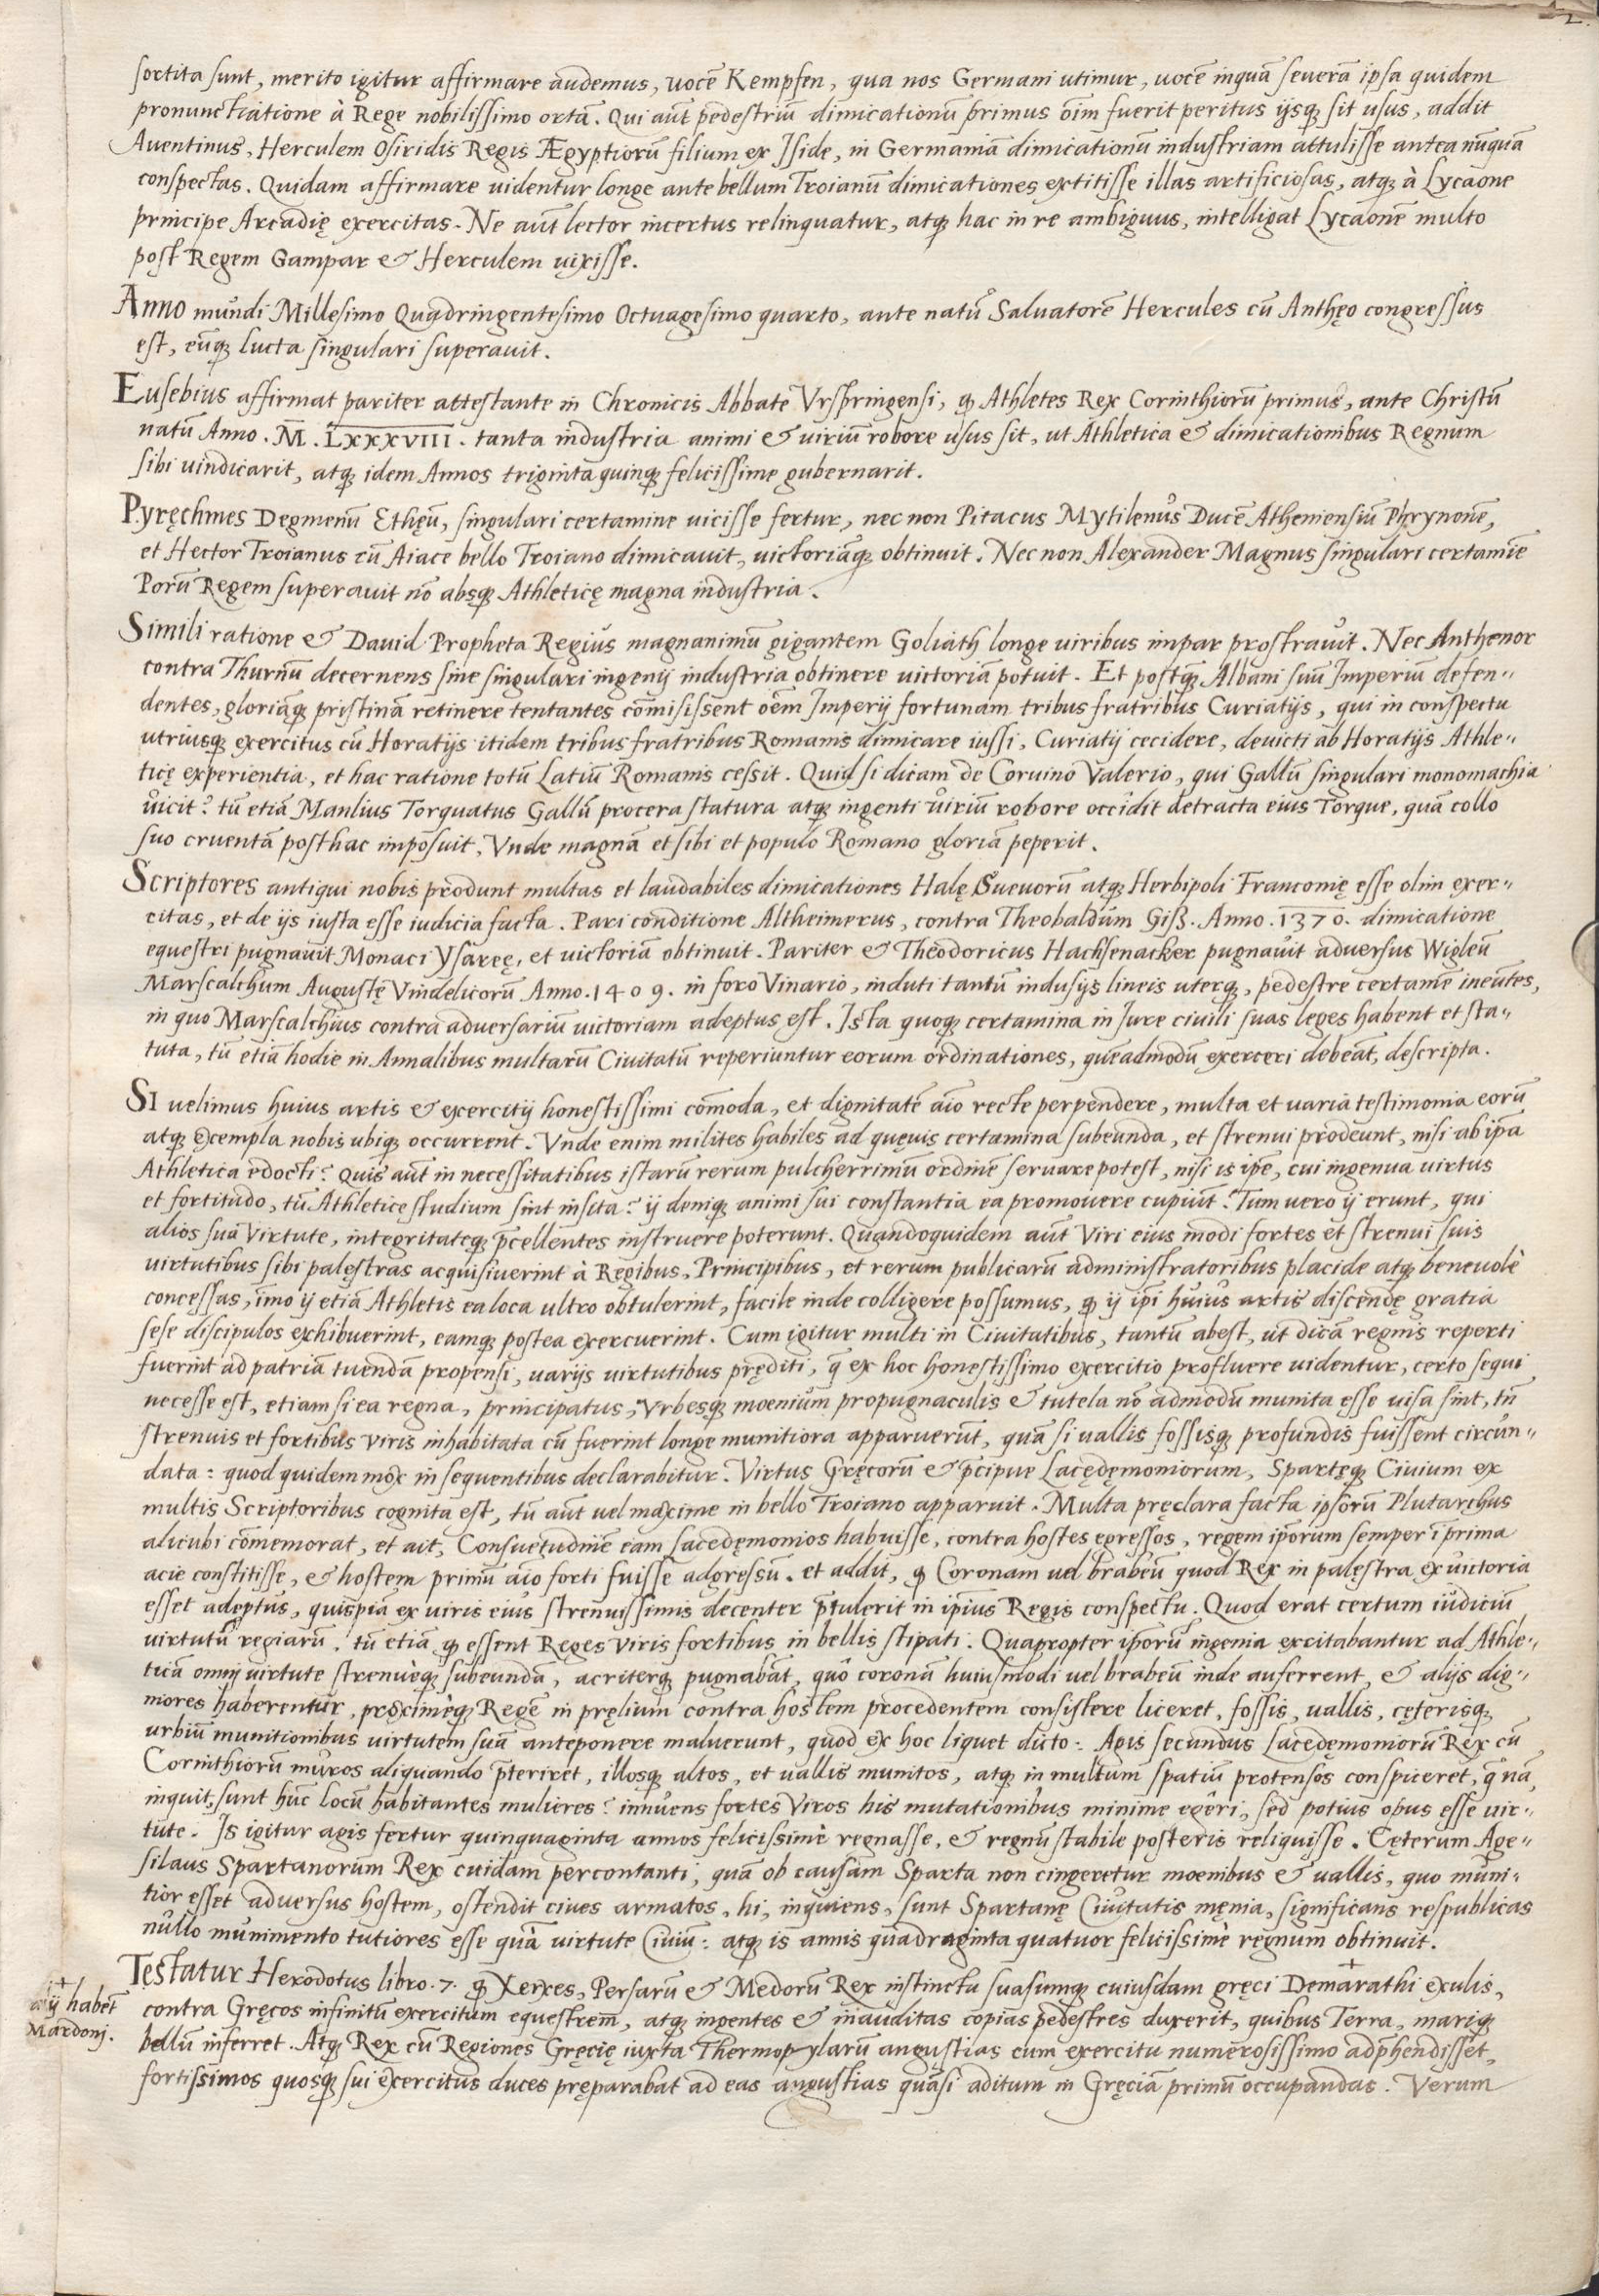 2.
sortita sunt, merito igitur affirmare audemus, uocē Kempfen, qua nos Germani utimur, uocē inquā seuerā ipsa quidem
pronunctiatione à Rege nobilissimo ortā. Qui aūt pedestriū dimicationū primus oīm fuerit peritus ijsqȝ sit usus, addit
Auentinus, Herculem Osiridis Regis Ægyptiorū filium ex Iside, in Germaniā dimicationū industriam attulisse antea nūquā
conspectas. Quidam affirmare uidentur longe ante bellum Troianū dimicationes extitisse illas artificiosas, atqȝ à Lycaone
principe Arcadię exercitas. Ne aūt lector incertus relinquatur, atqȝ hac in re ambiguus, intelligat Lycaonē multo
post Regem Gampar & Herculem uixisse.
Anno mundi Millesimo Quadringentesimo Octuagesimo quarto, ante natū Saluatorē Hercules cū Anthęo congressus
est, eūqȝ lucta singulari superauit.
Eusebius affirmat pariter attestante in Chronicis Abbate Vrspringensi, qȝ Athletes Rex Corinthiorū primus, ante Christū
natū Anno. M̄. LXXXVIII. tanta industria animi & uiriū robore usus sit, ut Athletica & dimicationibus Regnum
sibi uindicarit, atqȝ idem Annos triginta quinqȝ felicissime gubernarit.
Pyręchmes Degmenū Ethęū, singulari certamine uicisse fertur, nec non Pitacus Mytilenus Ducē Atheniensiū Phrynonē,
et Hector Troianus cū Aiace bello Troiano dimicauit, uictoriāqȝ obtinuit. Nec non Alexander Magnus singulari certamīe
Porū Regem superauit nō absqȝ Athleticę magna industria.
Simili ratione & Dauid Propheta Regius magnanimū gigantem Goliath longe uiribus impar prostrauit. Nec Anthenor
contra Thurnū decernens sine singulari ingenij industria obtinere uictoriā potuit. Et postqȝ Albani suū Imperiū defen=
dentes, gloriāqȝ pristinā retinere tentantes cōmisissent oēm Imperij fortunam tribus fratribus Curiatijs, qui in conspectu
utriusqȝ exercitus cū Horatijs itidem tribus fratribus Romanis dimicare iussi, Curiatij cecidere, deuicti ab Horatijs Athle=
ticę experientia, et hac ratione totū Latiū Romanis cessit. Quid si dicam de Coruino Valerio, qui Gallū singulari monomachia
uicit? tū etiā Manlius Torquatus Gallū procera statura atqȝ ingenti uiriū robore occidit detracta eius Torque, quā collo
suo cruentā posthac imposuit, Vnde magnā et sibi et populo Romano gloriā peperit.
Scriptores antiqui nobis produnt multas et laudabiles dimicationes Halę Sueuorū atqȝ Herbipoli Franconię esse olim exer=
citas, et de ijs iusta esse iudicia facta. Pari conditione Altheimerus, contra Theobaldum Giß. Anno. 1370. dimicatione
equestri pugnauit Monaci Ysaręę, et uictoriā obtinuit. Pariter & Theodoricus Hachsenacker pugnauit aduersus Wigleū
Marscalchum Augustę Vindelicorū Anno. 1409. in foro Vinario, induti tantū indusijs lineis uterqȝ, pedestre certamē ineūtes,
in quo Marscalchus contra aduersariū uictoriam adeptus est. Ista quoqȝ certamina in Jure ciuili suas leges habent et sta=
tuta, tū etiā hodie in Annalibus multarū Ciuitatū reperiuntur eorum ordinationes, quēadmodū exerceri debeāt, descripta.
SI uelimus huius artis & exercitij honestissimi cōmoda, et dignitatē aīo recte perpendere, multa et uaria testimonia eorū
atqȝ exempla nobis ubiqȝ occurrent. Vnde enim milites habiles ad quęuis certamina subeunda, et strenui prodeunt, nisi ab ipā
Athletica edocti? Quis aūt in necessitatibus istarū rerum pulcherrimū ordinē seruare potest, nisi is ipē, cui ingenua uirtus
et fortitudo, tū Athletice studium sint insita? ij deniqȝ animi sui constantia ea promouere cupiūt? Tum uero ij erunt, qui
alios sua Virtute, integritateqȝ p̄cellentes instruere poterunt. Quandoquidem aūt Viri eius modi fortes et strenui suis
uirtutibus sibi palęstras acquisiuerint à Regibus, Principibus, et rerum publicarū administratoribus placide atqȝ beneuolè
concessas, imo ij etiā Athletis ea loca ultro obtulerint, facile inde colligere possumus, qȝ ij ipi huius artis discendę gratia
sese discipulos exhibuerint, eamqȝ postea exercuerint. Cum igitur multi in Ciuitatibus, tantū abest, ut dicā regnis reperti
fuerint ad patriā tuenda propensi, uarijs uirtutibus pręditi, q̄ ex hoc honestissimo exercitio profluere uidentur, certo sequi
necesse est, etiam si ea regna, principatus, Vrbesqȝ moenium propugnaculis & tutela nō admodū munita esse uisa sint, tn̄
strenuis et fortibus Viris inhabitata cū fuerint longe munitiora apparuerūt, quā si uallis fossisqȝ profundis fuissent circūn=
data: quod quidem mox in sequentibus declarabitur. Virtus Gręcorū & p̄cipue Lacędęmoniorum, Spartęqȝ Ciuium ex
multis Scriptoribus cognita est, tū aūt uel maxime in bello Troiano apparuit. Multa pręclara facta ipsorū Plutarchus
alicubi cōmemorat, et ait, Consuetudinē eam Lacedęmonios habuisse, contra hostes egressos, regem ip̄orum semper ī prima
acie constitisse, & hostem primū aīo forti fuisse adgressū. et addit, qȝ Coronam uel brabeū quod Rex in palęstra ex uictoria
esset adeptus, quispiā ex uiris eius strenuissimis decenter p̄tulerit in ipīus Regis conspectu. Quod erat certum iudiciū
uirtutū regiarū. tū etiā qȝ essent Reges Viris fortibus in bellis stipati. Quapropter ip̄orū ingenia excitabantur ad Athle=
ticā omni uirtute strenuèqȝ subeunda, acriterqȝ pugnabāt, quò coronā huiusmodi uel brabeū inde auferrent, & alijs dig=
niores haberentur, proximèqȝ Regē in pręlium contra hostem procedentem consistere liceret, fossis, uallis, cęterisqȝ
urbiū munitionibus uirtutem suā anteponere maluerunt, quod ex hoc liquet dicto. Agis secundus Lacedęmoniorū Rex cū
Corinthiorū muros aliquando p̄teriret, illosqȝ altos, et uallis munitos, atqȝ in multum spatiū protensos conspiceret, q̄ nā,
inquit, sunt hūc locū habitantes mulieres? innuens fortes Viros his mutationibus minime egeri, sed potius opus esse uir=
tute. Is igitur agis fertur quinquaginta annos felicissimè regnasse, & regnū stabile posteris reliquisse. Cęterum Age=
silaus Spartanorum Rex cuidam percontanti, quā ob causam Sparta non cingeretur moenibus & uallis, quo muni=
tior esset aduersus hostem, ostendit ciues armatos, hi, inquiens, sunt Spartanę Ciuitatis męnia, significans respublicas
nullo munimento tutiores esse quā uirtute Ciuiū: atqȝ is annis quadraginta quatuor felicissimè regnum obtinuit.
Testatur Herodotus libro. 7. qȝ Xerxes, Persarū & Medorū Rex instinctu suasumqȝ cuiusdam gręci Demarathi exulis,
+
alij habēt
Mardonj.
contra Gręcos infinitū exercitum equestrem, atqȝ ingentes & inauditas copias pedestres duxerit, quibus Terra, mariqȝ
bellū inferret. Atqȝ Rex cū Regiones Gręcię iuxta Thermopylarū angustias cum exercitu numerosissimo adp̄hendisset,
fortissimos quosqȝ sui exercitus duces pręparabat ad eas angustias quasi aditum in Gręciā primū occupandas. Verum